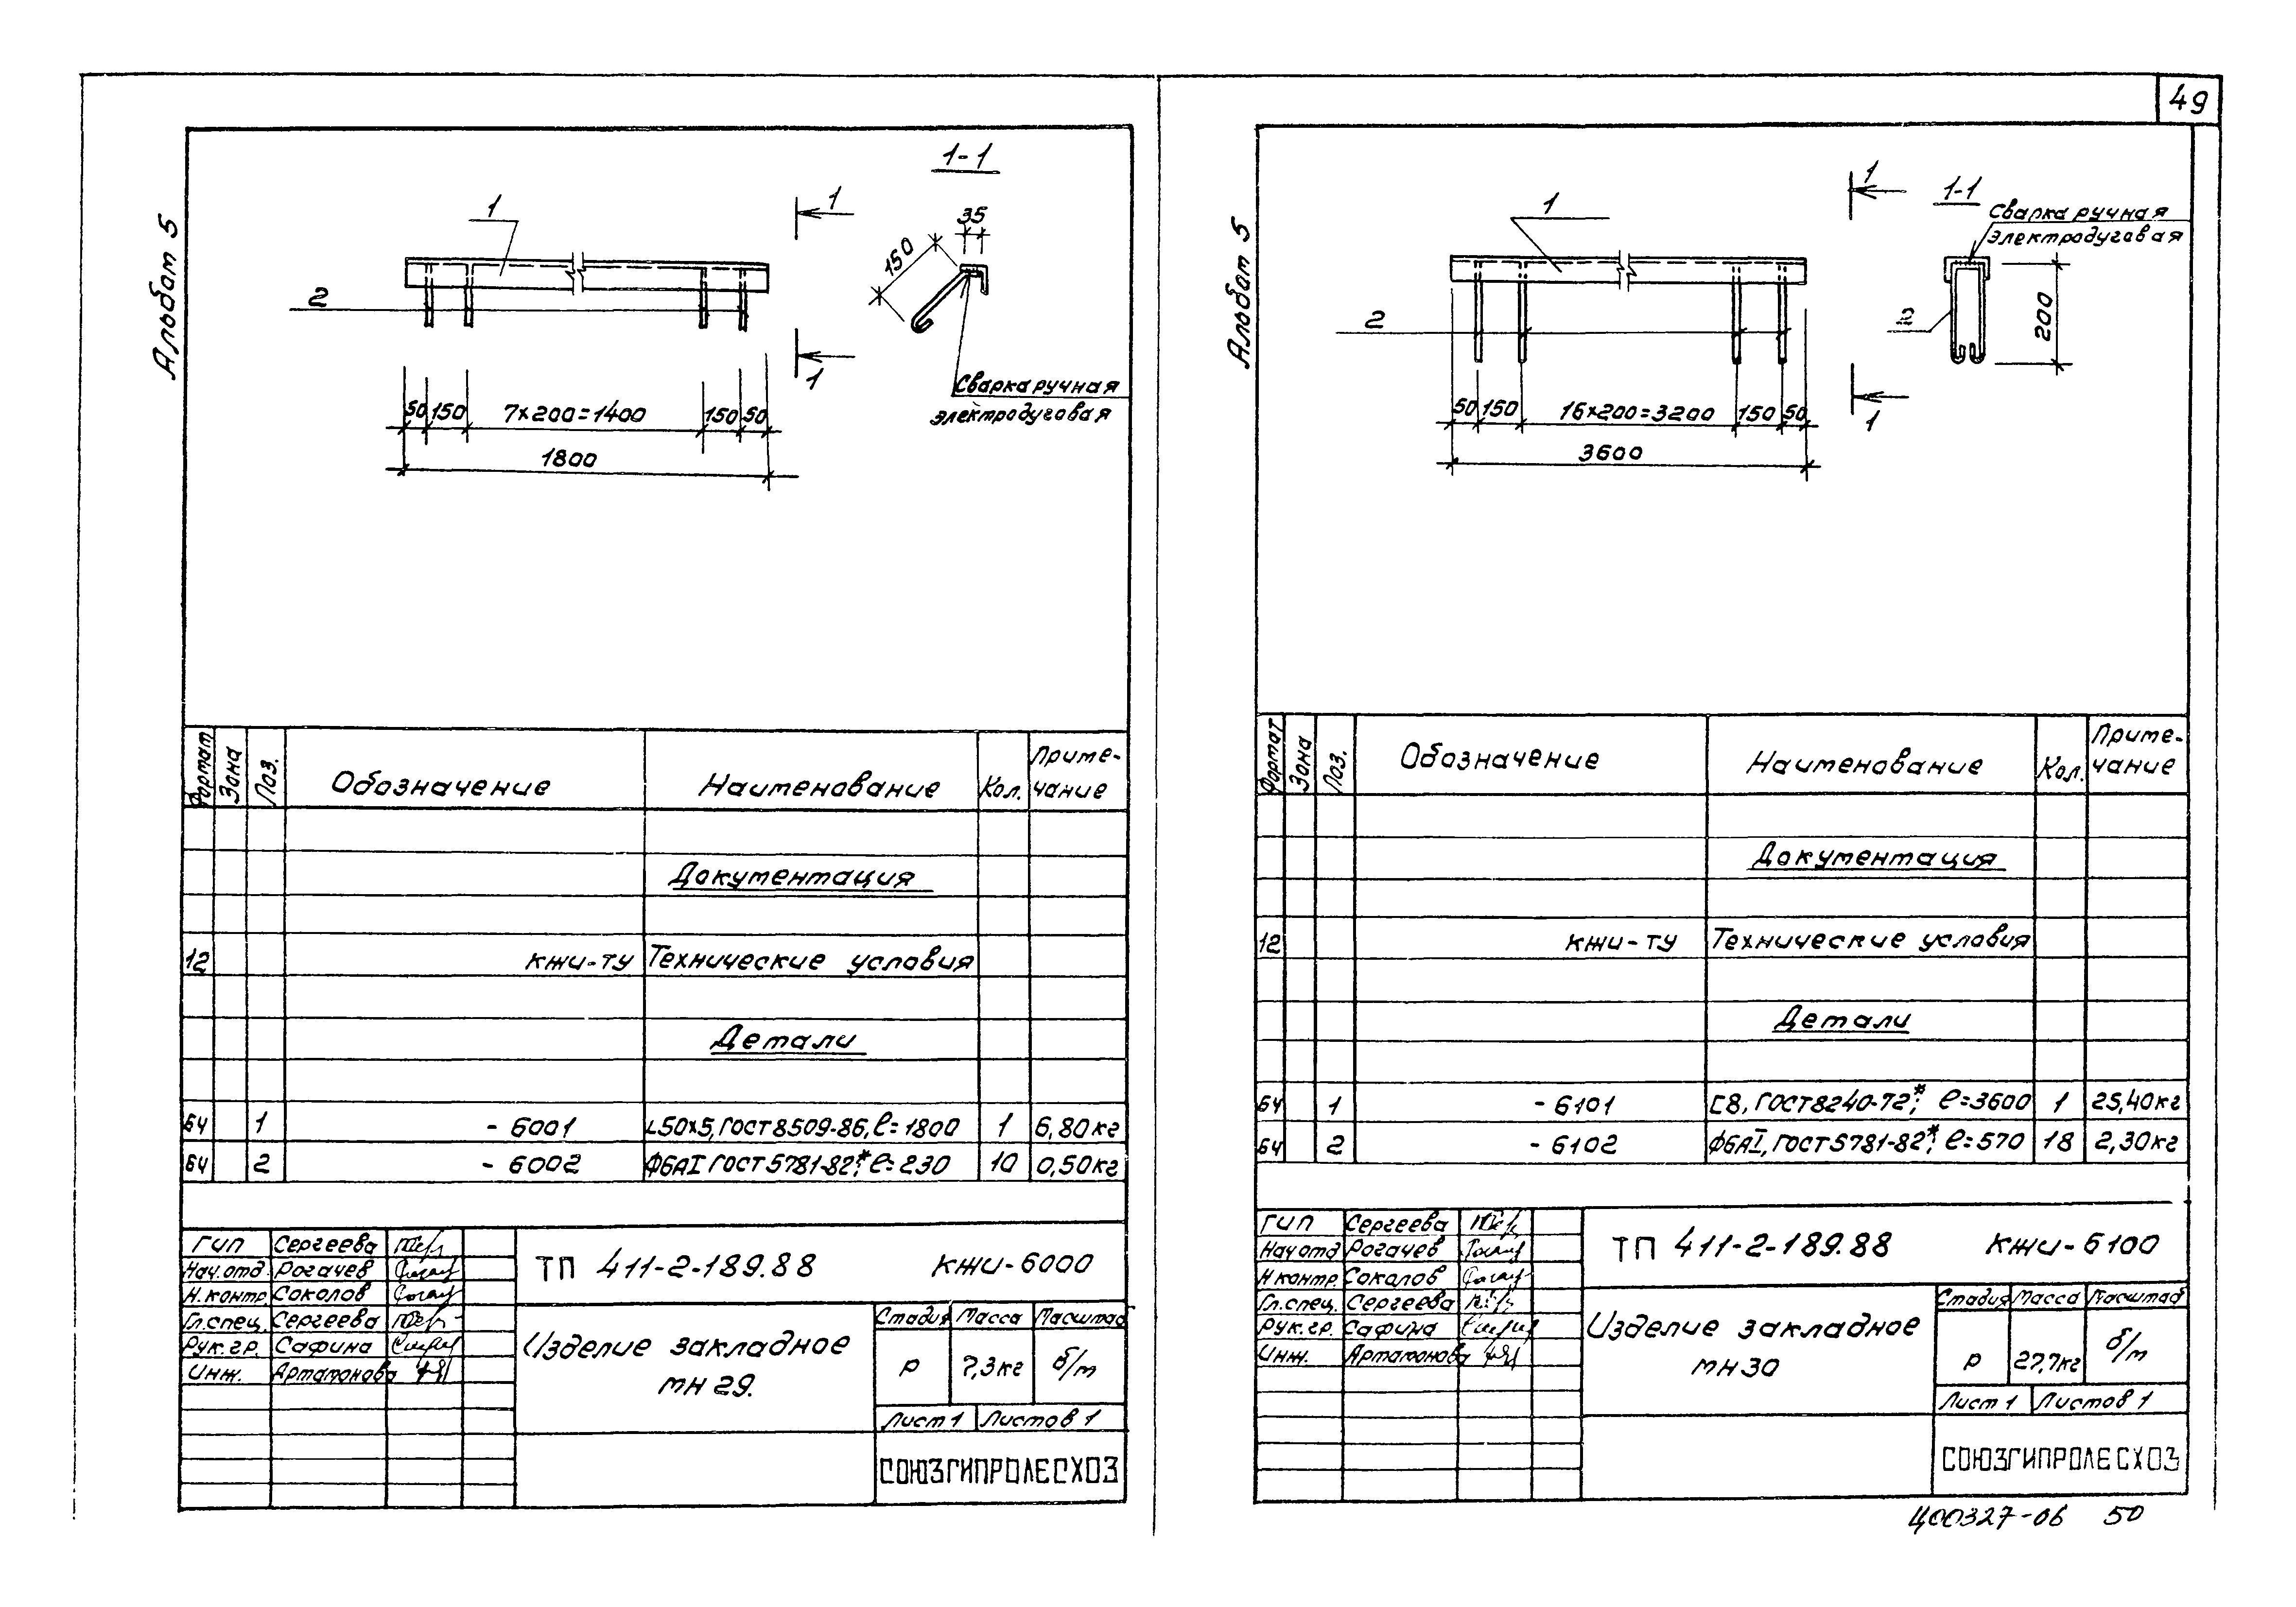 49
Альбом 5
1-1
1
1
35
150
2
Сварка ручная
электродуговая
1
50 150 7×200=1400 150 50
1800
Формат Зона Поз. Обозначение Наименование Кол. Приме-
чание
Документация
12 КЖИ-ТУ Технические условия
Детали
БЧ 1 -6001 ∟50×5, ГОСТ 8509-86, ℓ=1800 1 6,80кг
БЧ 2 -6002 Ф6АI ГОСТ 5781-82*, ℓ=230 10 0,50кг
ГИП Сергеева
Нач.отд. Рогачев
Н.контр. Соколов
Гл.спец. Сергеева
Рук.гр. Сафина
Инж. Артамонова
ТП 411-2-189.88 КЖИ-6000
Изделие закладное
МН 29.
Стадия Масса Масштаб
Р 7,3кг б/м
Лист 1 Листов 1
СОЮЗГИПРОЛЕСХОЗ
Альбом 5
1
1
1-1
Сварка ручная
электродуговая
2
2
200
1
50 150 16×200=3200 150 50
3600
Формат Зона Поз. Обозначение Наименование Кол. Приме-
чание
Документация
12 КЖИ-ТУ Технические условия
Детали
БЧ 1 -6101 [8, ГОСТ 8240-72*, ℓ=3600 1 25,40кг
БЧ 2 -6102 Ф6АI, ГОСТ 5781-82*, ℓ=570 18 2,30кг
ГИП Сергеева
Нач отд Рогачев
Н контр. Соколов
Гл.спец. Сергеева
Рук.гр. Сафина
Инж. Артамонова
ТП 411-2-189.88 КЖИ-6100
Изделие закладное
МН 30
Стадия Масса Масштаб
Р 27,7кг б/м
Лист 1 Листов 1
СОЮЗГИПРОЛЕСХОЗ
Ц00327-06 50